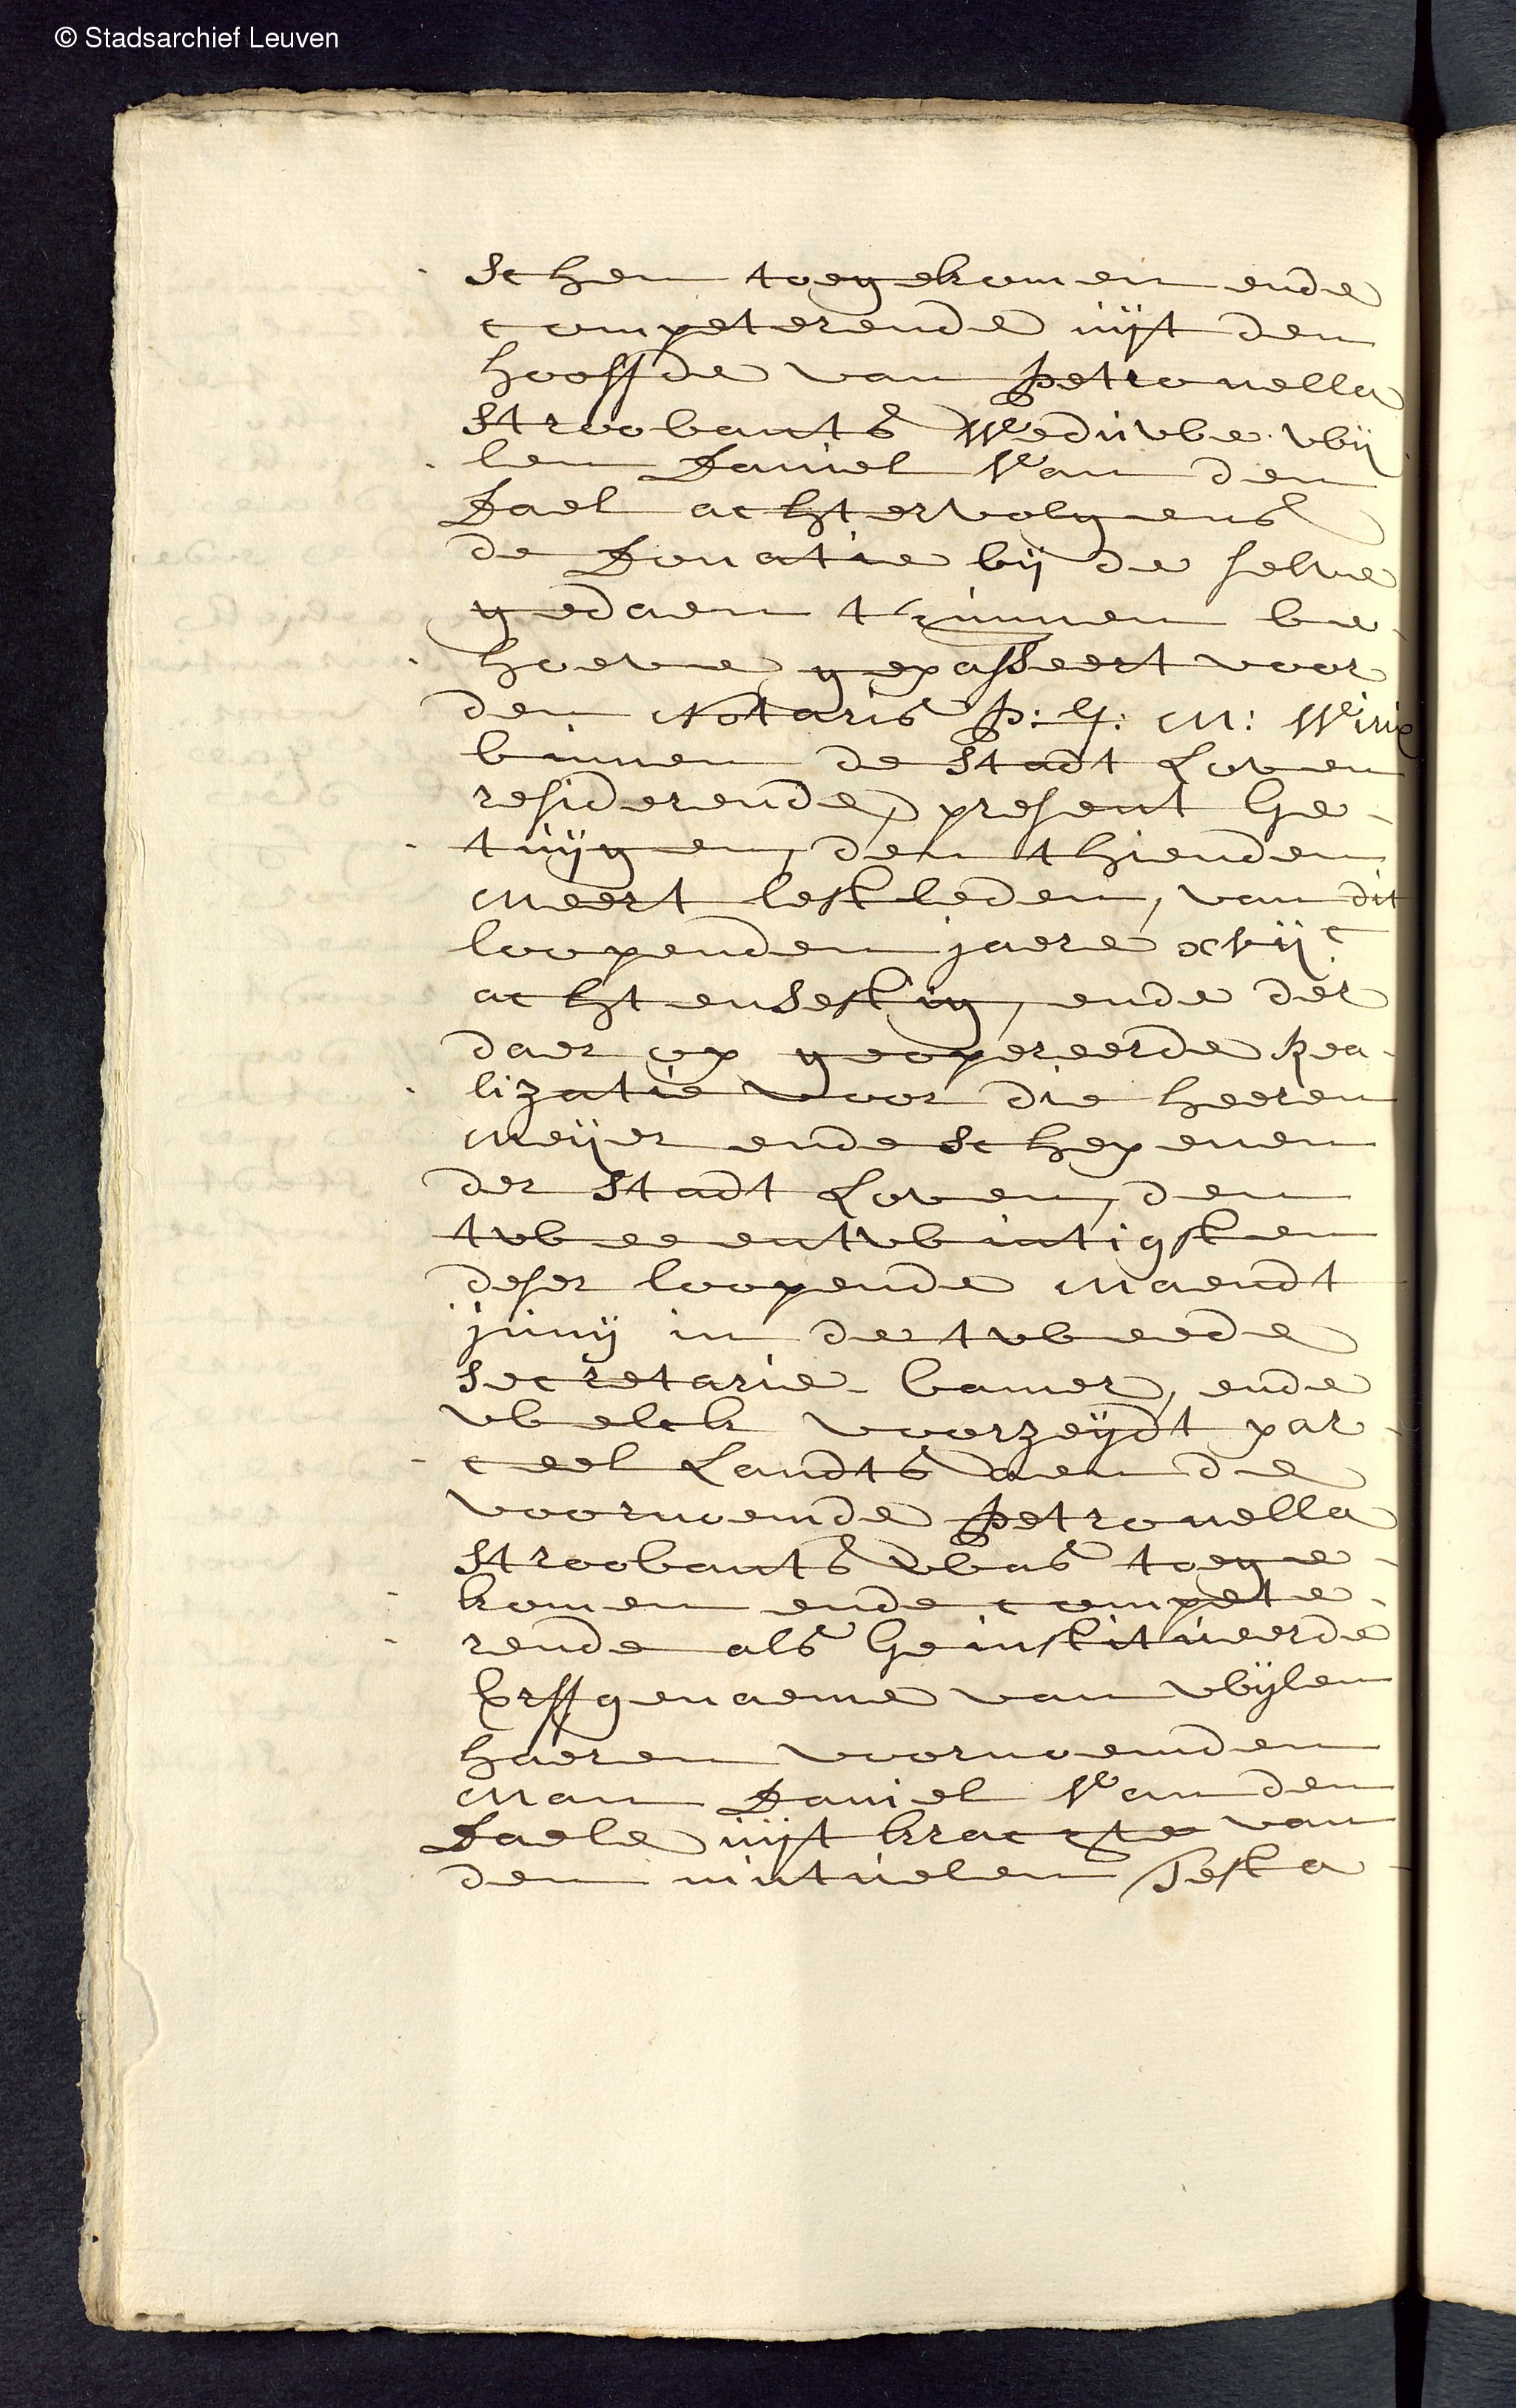 © Stadsarchief Leuven
schen toegekomen ende
competerende uijt den
hooffde van Petronella
Stroobants Weduwe wij
len Daniel Van den
Dael achtervolgens
de Donatie bij de selve
gedaen t'zijnnen be-
hoeve gepasseert voor
den Notaris P: G: M: Wirix
binnen de Stadt Loven
residerende, present Ge-
tuijgen, den thienden
Meert lestleden, van dit
loopenden jaere xvij c
achtensestig, ende der
daer op geopereerde Rea-
lizatie voor die heeren
Meijer ende Schepenen
der Stadt Loven, den
tweeentwintigsten
deser loopende Maendt
junij in de tweede
Secretarie-Camer, ende
welck voorzeijdt par-
ceel Landts aen de
voornoemde Petronella
Stroobants was toege-
komen ende compete-
rende als Geinstitueerde
Erffgenaeme van wijlen
haeren voornoemden
Man Daniel Van den
Daele uijt krachte van
den mutuelen Testa-